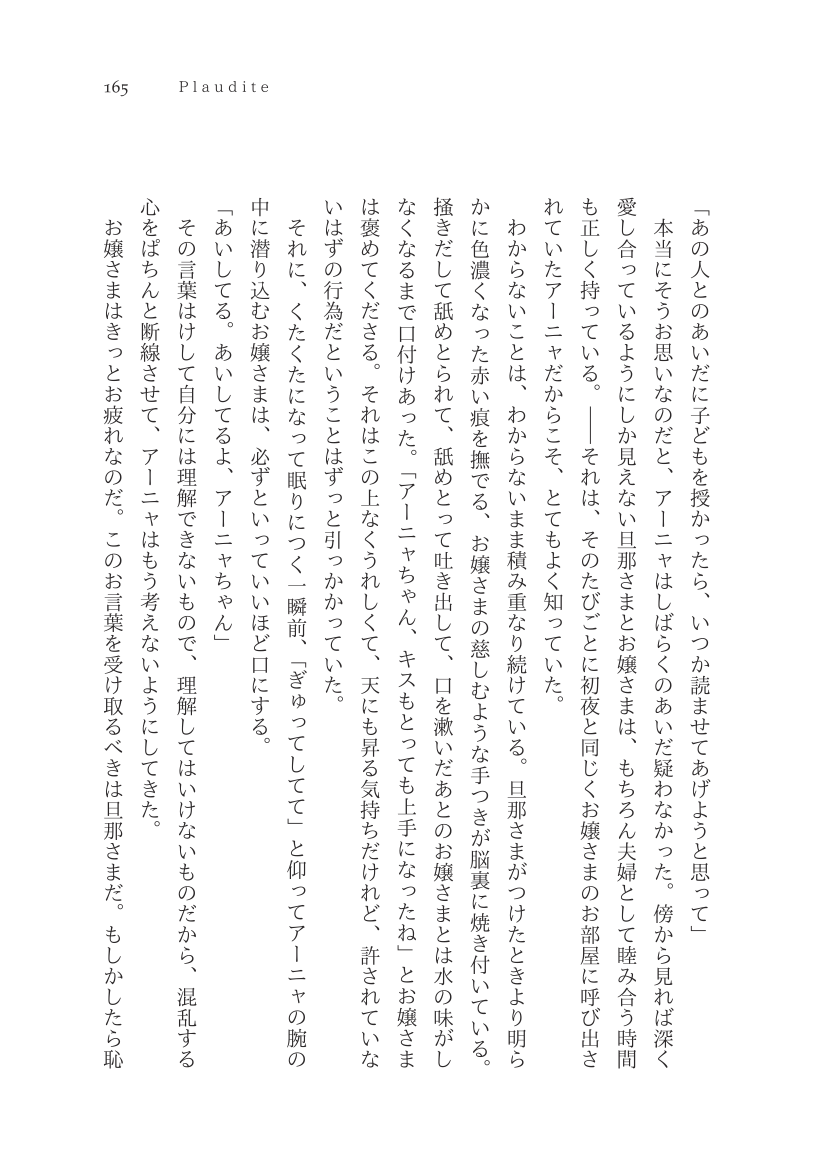 165 Plaudite
「あの人とのあいだに子どもを授かったら、いつか読ませてあげようと思って」
本当にそうお思いなのだと、アーニャはしばらくのあいだ疑わなかった。傍から見れば深く
愛し合っているようにしか見えない旦那さまとお嬢さまは、もちろん夫婦として睦み合う時間
も正しく持っている。――それは、そのたびごとに初夜と同じくお嬢さまのお部屋に呼び出さ
れていたアーニャだからこそ、とてもよく知っていた。
わからないことは、わからないまま積み重なり続けている。旦那さまがつけたときより明ら
かに色濃くなった赤い痕を撫でる、お嬢さまの慈しむような手つきが脳裏に焼き付いている。
掻きだして舐めとられて、舐めとって吐き出して、口を漱いだあとのお嬢さまとは水の味がし
なくなるまで口付けあった。「アーニャちゃん、キスもとっても上手になったね」とお嬢さま
は褒めてくださる。それはこの上なくうれしくて、天にも昇る気持ちだけれど、許されていな
いはずの行為だということはずっと引っかかっていた。
それに、くたくたになって眠りにつく一瞬前、「ぎゅってしてて」と仰ってアーニャの腕の
中に潜り込むお嬢さまは、必ずといっていいほど口にする。
「あいしてる。あいしてるよ、アーニャちゃん」
その言葉はけして自分には理解できないもので、理解してはいけないものだから、混乱する
心をぱちんと断線させて、アーニャはもう考えないようにしてきた。
お嬢さまはきっとお疲れなのだ。このお言葉を受け取るべきは旦那さまだ。もしかしたら恥